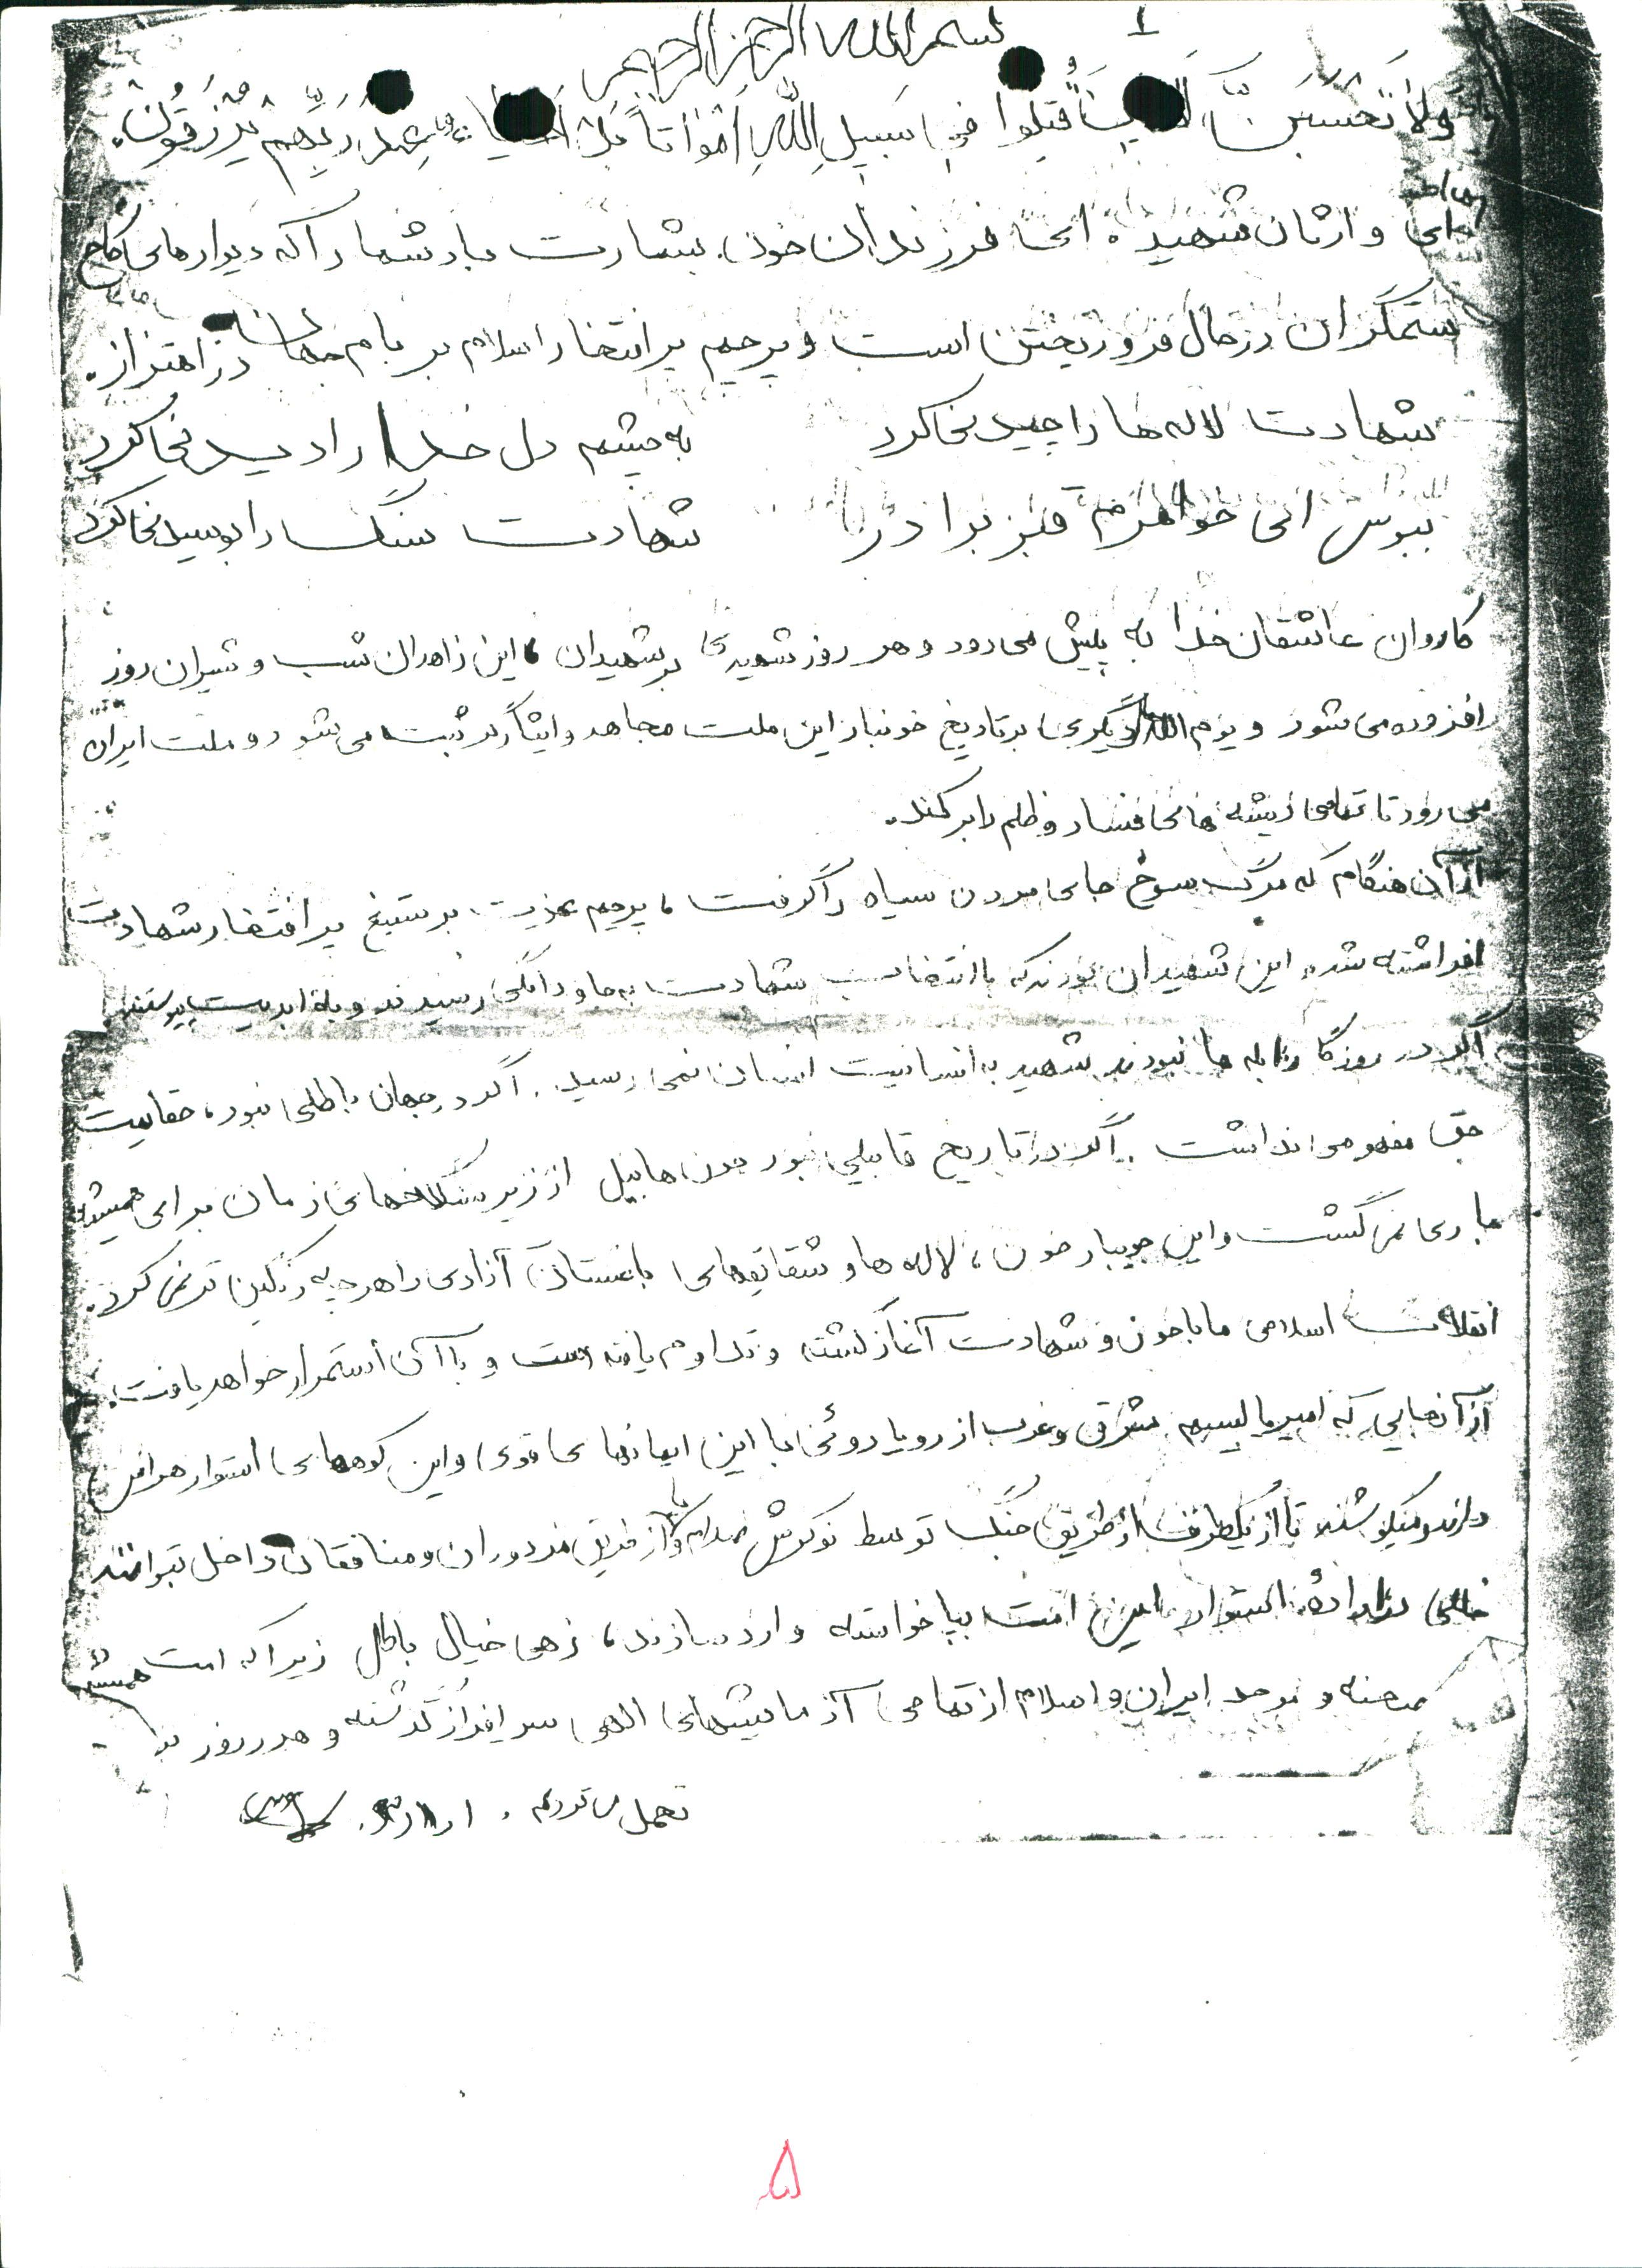 ۱
بسم الله الرحمن الرحیم
ولا تحسبن الذین قتلوا فی سبیل الله امواتاً بل احیاء عند ربهم یرزقون.
ای وارثان شهید، ای فرزندان خون، بشارت باد شما را که دیوارهای کاخ
ستمگران در حال فروریختن است و پرچم پر افتخار اسلام بر بام در اهتزاز.
شهادت لاله ها را چیدنی کرد به چشم دل خدا را دیدنی کرد
ببوس ای خواهرم قبر برادر شهادت سنگ را بوسیدنی کرد
کاروان عاشقان خدا به پیش می رود و هر روز شهیدی بر شهیدان، این زاهدان شب و شیران روز
افزوده می شود و یوم الله دیگری بر تاریخ خونبار این ملت مجاهد و ایثارگر ثبت می شود و ملت ایران
می رود تا تمامی ریشه های فساد و ظلم را بر کند.
از آن هنگام که مرگ سرخ جای مردن سیاه را گرفت، پرچم بر ستیغ پر افتخار شهادت
افراشته شد. این شهیدان بودند که با انتخاب شهادت به جاودانگی رسیدند و به ابدیت پیوستند.
اگر در روزگار نبودند شهید به انسانیت انسان نمی رسید. اگر در جهان باطلی نبود، حقانیت
حق مفهومی نداشت. اگر در تاریخ قابیلی نبود خون هابیل از زیر سنگلاخهای زمان برای همیشه
جاری نمی گشت و این جویبار خون، لاله ها و شقایقهای باغستان آزادی را هر چه رنگین تر نمی کرد.
انقلاب اسلامی ما با خون و شهادت آغاز گشته و تداوم یافته است و با آن استمرار خواهد یافت.
از آنجایی که امپریالیسم شرق و غرب از رویاروئی با این ایمانهای قوی و این کوههای استوار هراس
دارند میکوشند تا از یکطرف از طریق جنگ توسط نوکرش صدام و از طریق مزدوران و منافقان داخل بتوانند
خللی در اراده استوار این امت بپا خواسته وارد سازند، زهی خیال باطل زیرا که امت همیشه در
صحنه و موحد ایران و اسلام از تمامی آزمایشهای الهی سرافراز گذشته و هر روز
می
۵